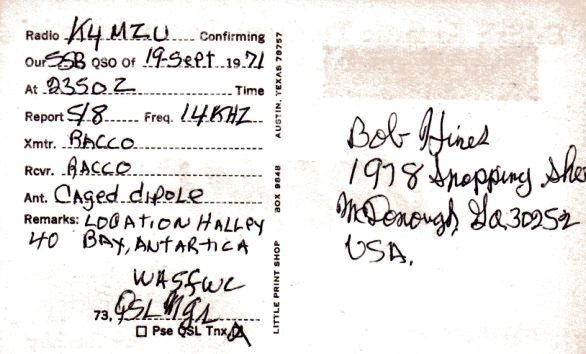 Radio K4MZU Confirming
Our SSB QSO Of 19-Sept 1971
At 2350Z Time
Report 5/8 Freq. 14KHZ
Xmtr. RACCO
Rcvr. RACCO
Ant. Caged dipole
Remarks: LOCATION HALLEY
40 BAY, ANTARTICA
WA5FWC
73, QSL Mgr
Pse QSL Tnx
LITTLE PRINT SHOP BOX 9848 AUSTIN, TEXAS 78757
Bob Hines
1978 Snapping
McDonough, Ga, 30252
USA.